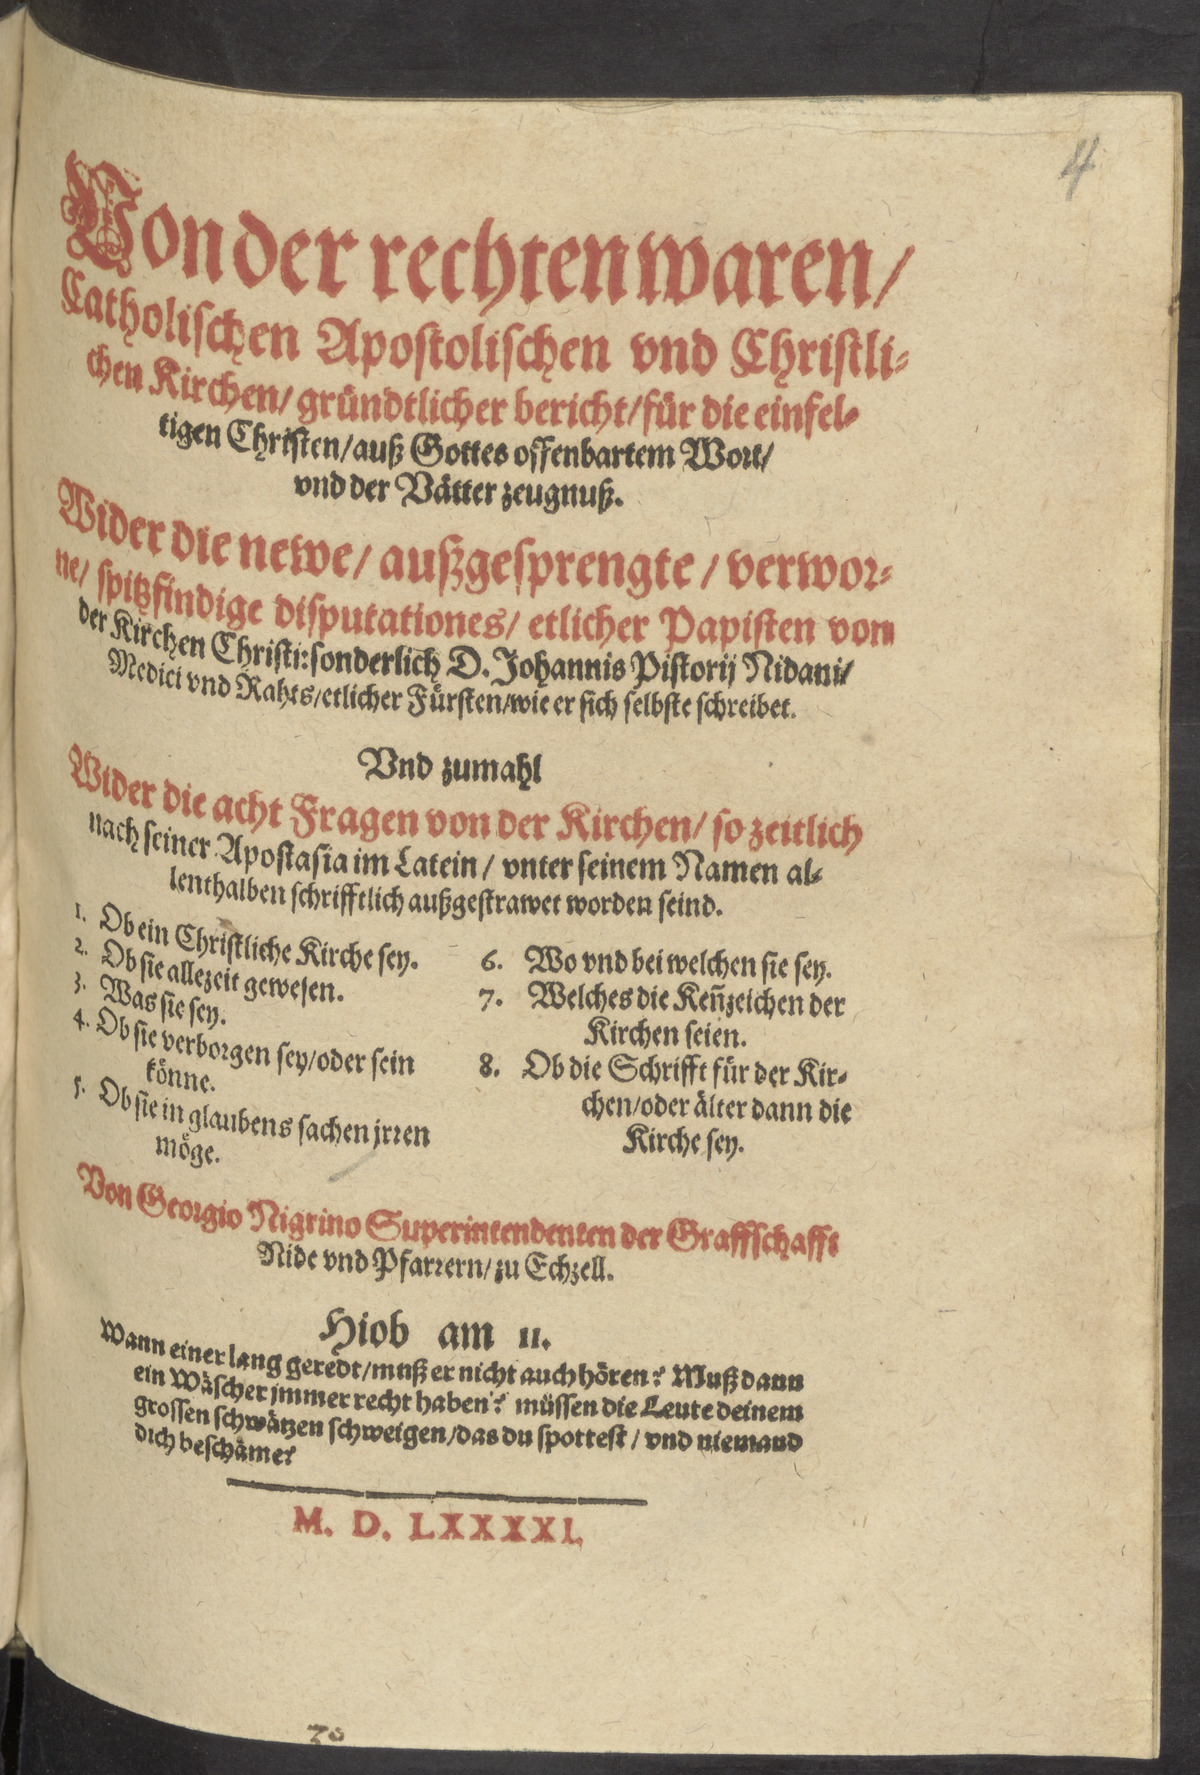 4
Von der rechten waren/
Catholischen Apostolischen vnd Christli-
chen Kirchen/ gründtlicher bericht/ für die einfel-
tigen Christen/ auß Gottes offenbartem Wort/
vnd der Vätter zeugnuß.
Wider die newe/ außgesprengte/ verwor-
ne/ spitzfindige disputationes/ etlicher Papisten vom
der Kirchen Christi: sonderlich D. Johannis Pistorij Nidani/
Medici vnd Rahts/ etlicher Fürsten/ wie er sich selbste schreibet.
Vnd zumahl
Wider die acht Fragen von der Kirchen/ so zeitlich
nach seiner Apostasia im Latein/ vnter seinem Namen al-
lenthalben schrifftlich außgestrawet worden seind.
1. Ob ein Christliche Kirche sey.
2. Ob sie allezeit gewesen.
3. Was sie sey.
4. Ob sie verborgen sey/ oder sein
könne.
5. Ob sie in glaubens sachen jrren
möge.
6. Wo vnd bei welchen sie sey.
7. Welches die Keñzeichen der
Kirchen seien.
8. Ob die Schrifft für der Kir-
chen/ oder älter dann die
Kirche sey.
Von Georgio Nigrino Superintendenten der Graffschafft
Nide vnd Pfarrern/ zu Echzell.
Hiob am 11.
Wann einer lang geredt/ mnß er nicht auch hören? Muß dann
ein Wäscher jmmer recht haben? müssen die Leute deinem
grossen schwätzen schweigen/ das du spottest/ vnd niemand
dich beschäme?
M. D. LXXXXI.